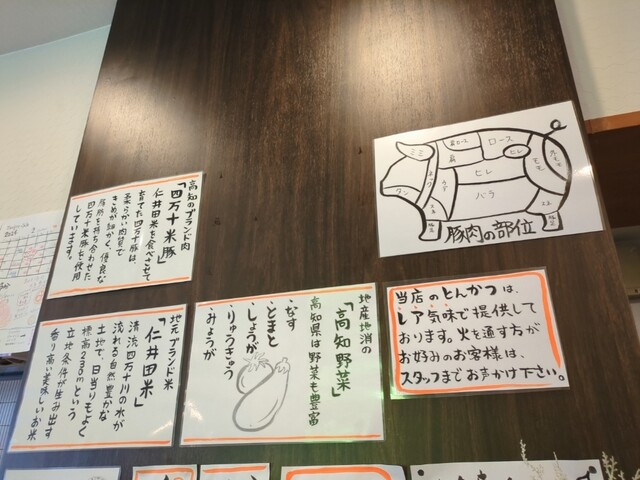 高知のブランド肉
「四万十米豚」
仁井田米を食べさせて
育てた四万十豚は、
柔らかい肉質で
きめが細かく、優良な
脂肪を持ち合わせた
四万十米豚を使用
しています。
ミミ
肩ロース
肩
ロース
ヒレ
ヒレ
バラ
モモ
ネック
ウデ
タン
豚足
豚肉の部位
地元ブランド米
「仁井田米」
清流四万十川の水が
流れる自然豊かな
土地で、日当りもよく
標高230mという
立地条件が生み出す
香り高い美味しいお米
地産地消の
「高知野菜」
高知県は野菜も豊富
・なす
・とまと
・しょうが
・りゅうきゅう
・みょうが
当店のとんかつは、
レア気味で提供して
おります。火を通す方が
お好みのお客様は、
スタッフまでお声かけ下さい。